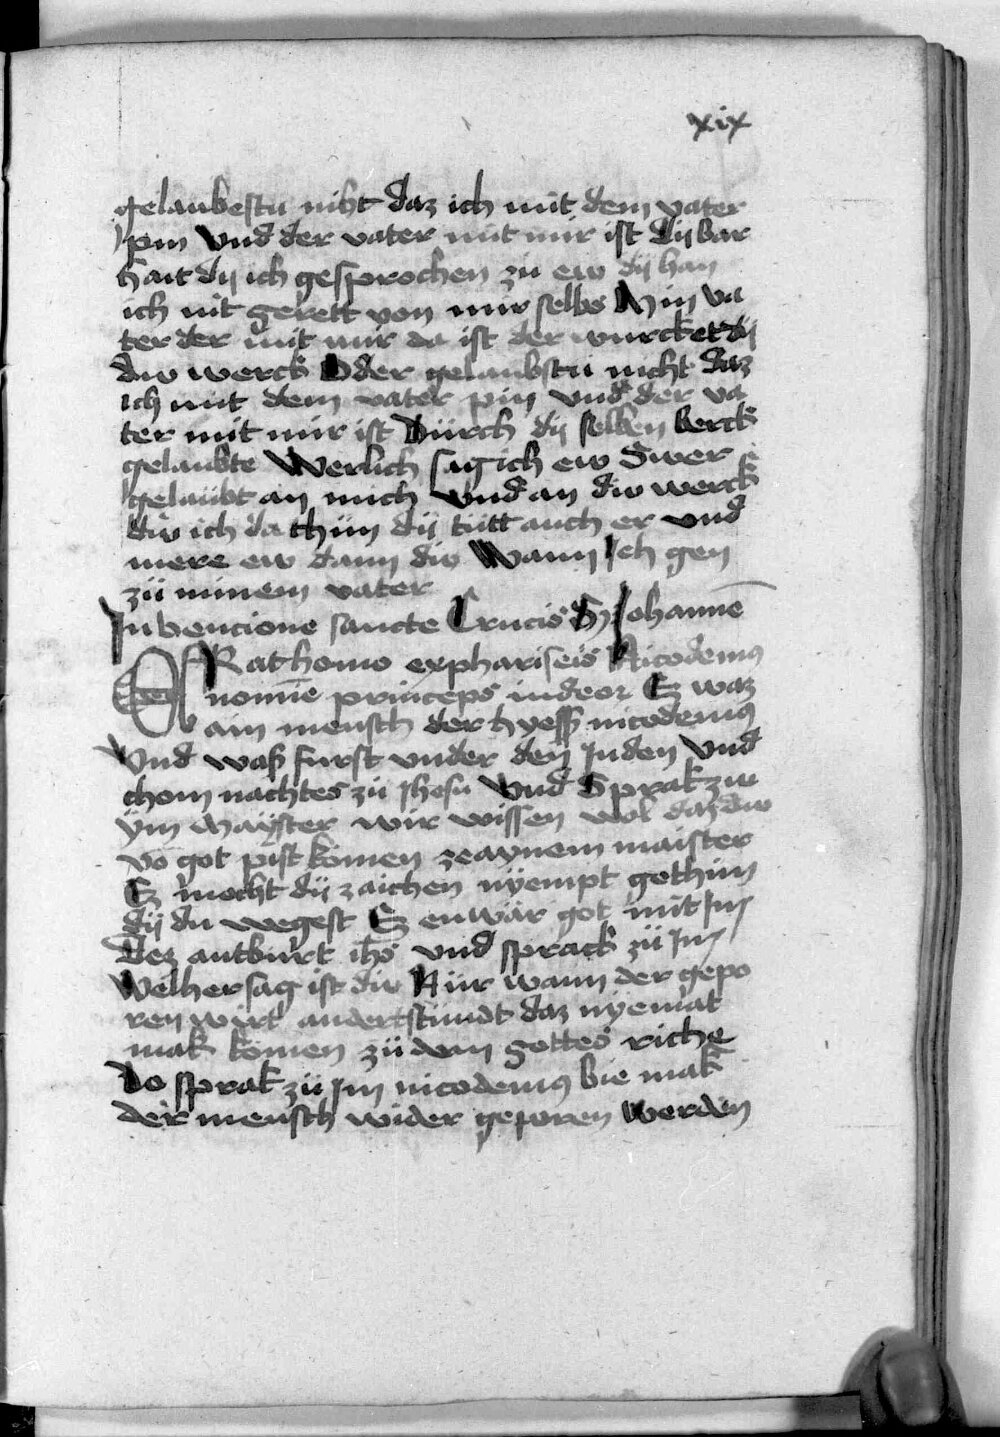 xix
gelaubestu niht daz ich mit dem vater
pin Vnd der vater mit mir ist Dij bar
hait dij ich gesprochen zu ew dij han
ich nit gerett von mir selbs Min va
ter der mit mir da ist der wurcket dij
diw werck Oder gelaubstu nicht daz
ich mit dem vater pin vnd der va
ter mit mir ist Durch dij selben berck
gelaubte Werlich sag ich ew Swer
gelaubt an mich vnd an diw werck
diw ich da thün dij tütt auch er vnd
mere ew dann diw Wann Ich gen
zü minem vater
In Vencione sancte Crucis S Johanne
ERat homo ex phariseis Nicodemus
nomine princeps iudeor Ez waz
ain mensch der hyess nicodemus
Vnd waß furst vnder den Juden Vnd
chom nachtes zü Jhesu Vnd Sprak zue
ym Mayster wir wissen wol daz diw
vo got pist komen ze aynem maister
Ez mocht dij zaichen nyempt gethün
dij du wegest Ez enwär got mit Im
Dez antburt ihs vnd sprack zü Im
Welher sag ist diw Nür wann der gepo
ren wirt anderstundt daz nyemat
mak komen zü dem gottes riche
Do sprak zü Im nicodemus bie mak
der mensch wider geporen werden